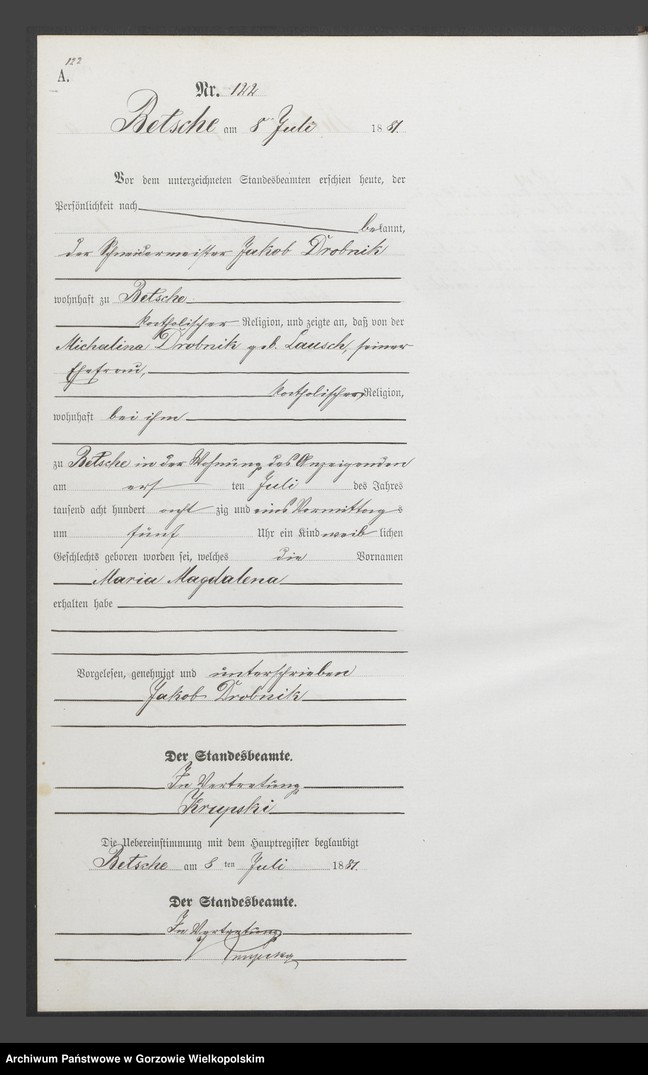 122
A.
Nr. 122
Betsche am 8 Juli 1881
Vor dem unterzeichneten Standesbeamten erschien heute, der
Persönlichkeit nach
bekannt,
der Schneidermeister Jakob Drobnik
wohnhaft zu Betsche
katholischer Religion, und zeigte an, daß von der
Michalina Drobnik geb. Lausch, seiner
Ehefrau,
katholischer Religion,
wohnhaft bei ihm
zu Betsche in der Wohnung des Anzeigenden
am ten Juli des Jahres
tausend acht hundert acht zig und eins Vormittags
um fünf Uhr ein Kind weib lichen
Geschlechts geboren worden sei, welches die Vornamen
Maria Magdalena
erhalten habe
Vorgelesen, genehmigt und unterschrieben
Jakob Drobnik
Der Standesbeamte.
In Vertretung
Krupski
Die Uebereinstimmung mit dem Hauptregister beglaubigt
Betsche am 8 ten Juli 1881.
Der Standesbeamte.
In Vertretung
Archiwum Państwowe w Gorzowie Wielkopolskim